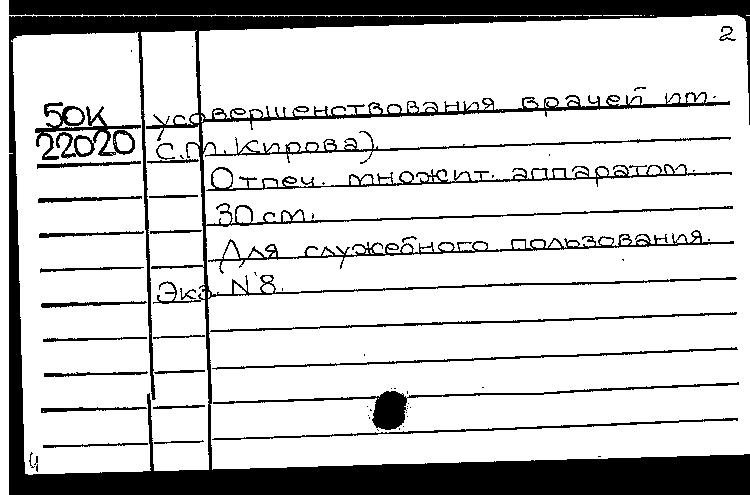 2
50к усовершенствования врачей им.
22020 С.М. Кирова)
Отпеч. множит. аппаратом.
30 см.
Для служебного пользования.
Экз. N 8.
4